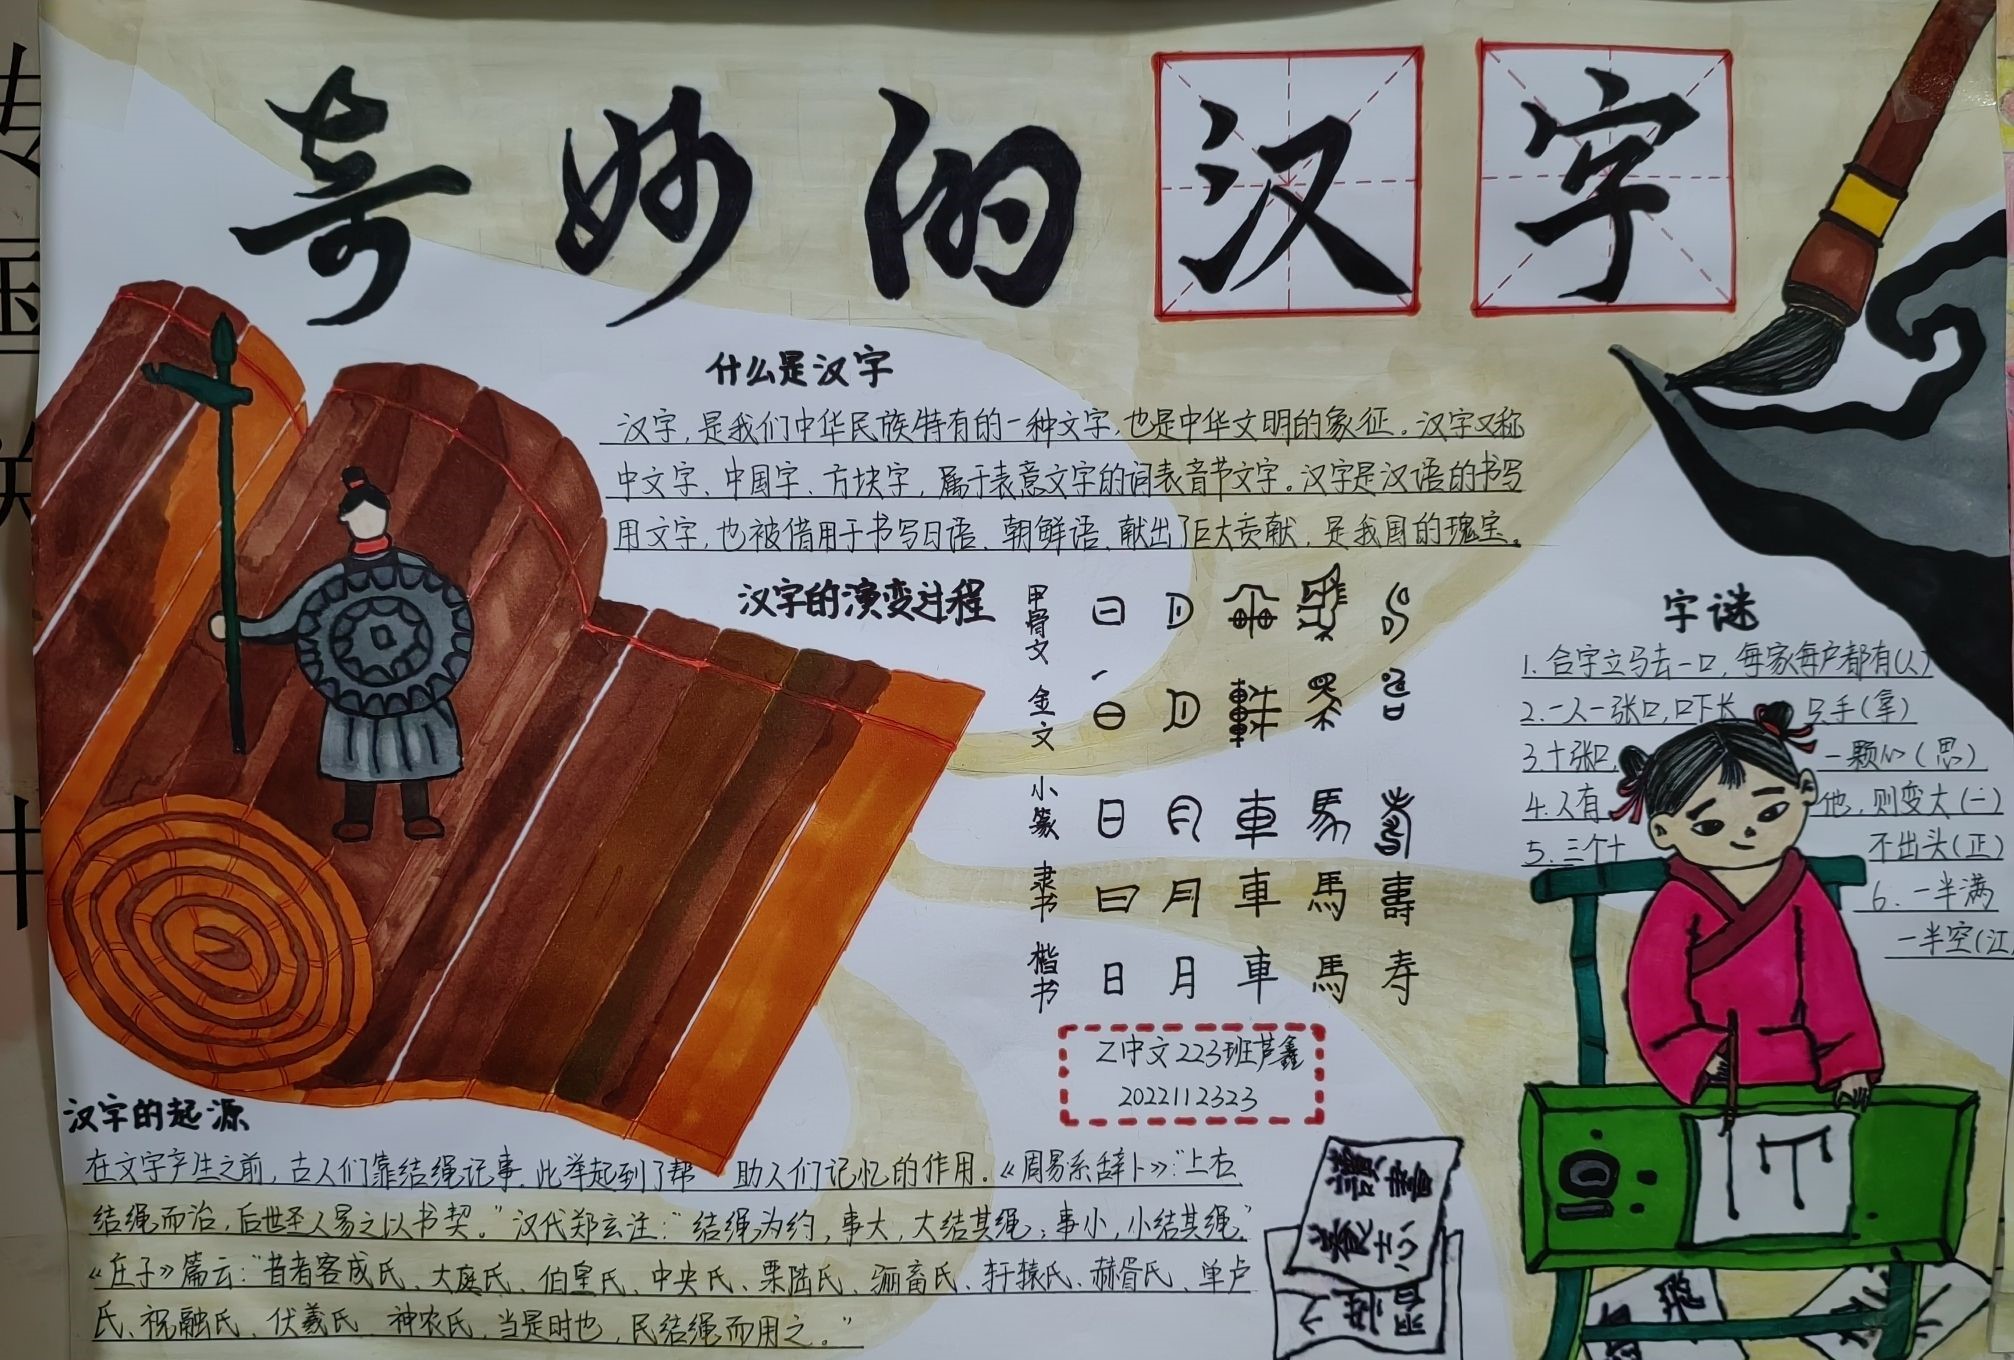 奇妙的汉字
什么是汉字
汉字，是我们中华民族特有的一种文字，也是中华文明的象征。汉字又称
中文字、中国字、方块字，属于表意文字的词表音节文字。汉字是汉语的书写
用文字，也被借用于书写日语、朝鲜语、献出了巨大贡献，是我国的瑰宝。
汉字的演变过程
甲骨文
金文
小篆
隶书 日 月 車 馬 壽
楷书 日 月 車 馬 寿
Z中文223班芦鑫
2022112323
字谜
1. 合字立马去一口，每家每户都有(人)
2. 一人一张口，口下长 只手(拿)
3. 十张口， 一颗心(思)
4. 人有 他，则变大(一)
5. 三个十 不出头(正)
6. 一半满
一半空(江
汉字的起源
在文字产生之前，古人们靠结绳记事，此举起到了帮 助人们记忆的作用。《周易系辞卜》："上右
结绳而治，后世圣人易之以书契。"汉代郑玄注："结绳为约，事大，大结其绳；事小，小结其绳。"
《庄子》篇云："昔者客成氏、大庭氏、伯皇氏、中央氏、栗陆氏、骊畜氏、轩辕氏、赫胥氏、单卢
氏、祝融氏、伏羲氏、神农氏，当是时也，民结绳而用之。"